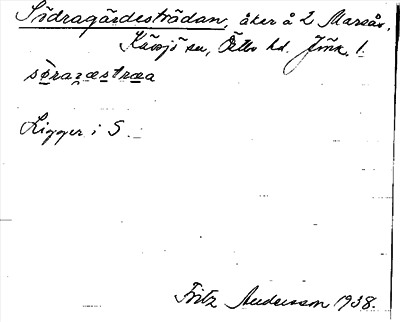 Södragärdesträdan, åker å 2 Marsås,
Kävsjö sn, Östbo hd. Jönk. l.
sø̀raʒæstræa
Ligger i S.
Fritz Andersson 1938.